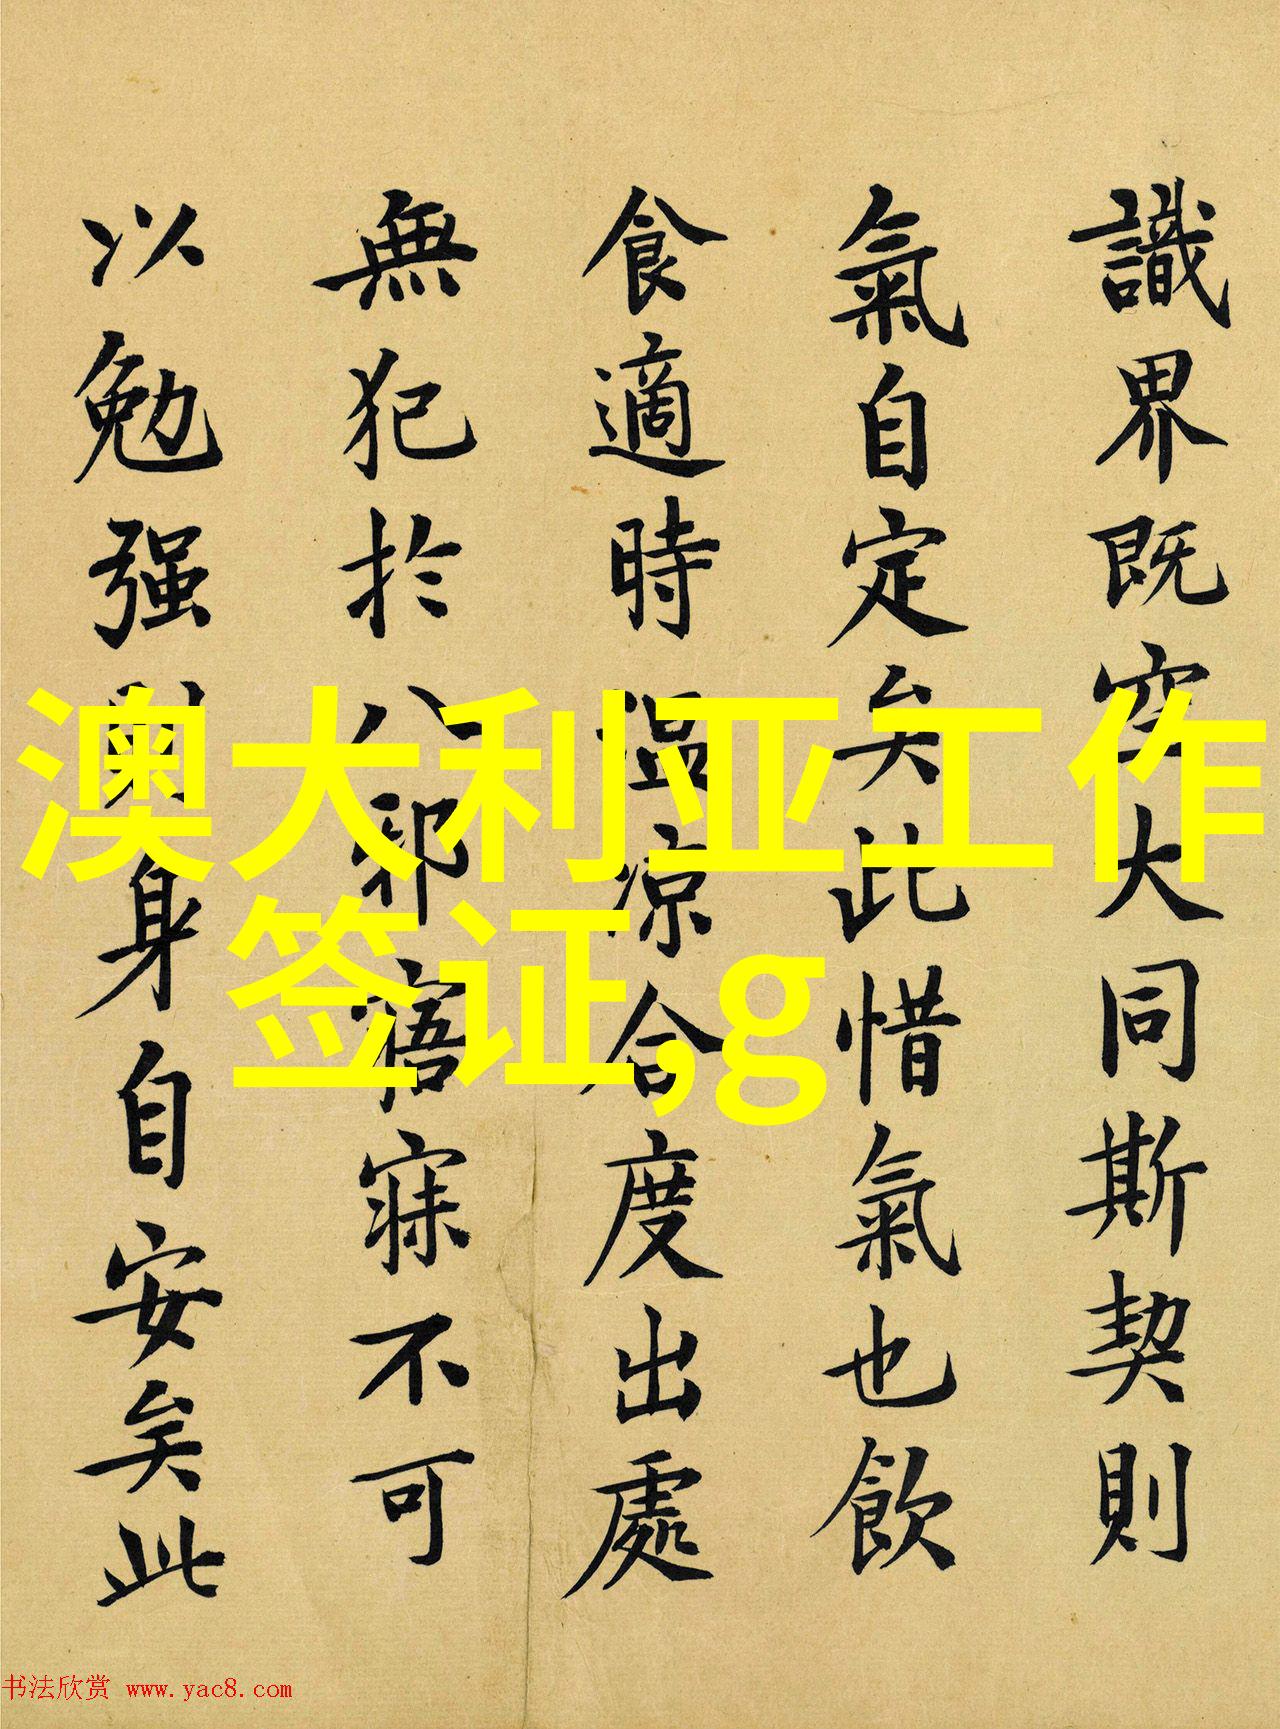 識界既空大同斯契則
氣自定矣此惜氣也飲
食適時温凉合度出處
無犯於八邪寤寐不可
以勉强則身自安矣此
澳大利亚工作
签证,g
书法欣赏 www.yac8.com